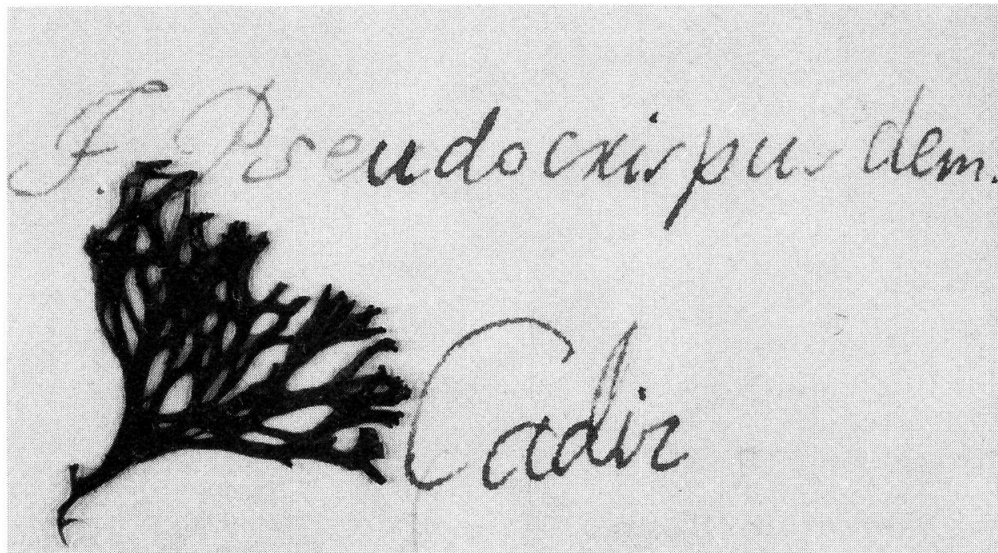 F. Pseudocrispus dem.
Cadiz